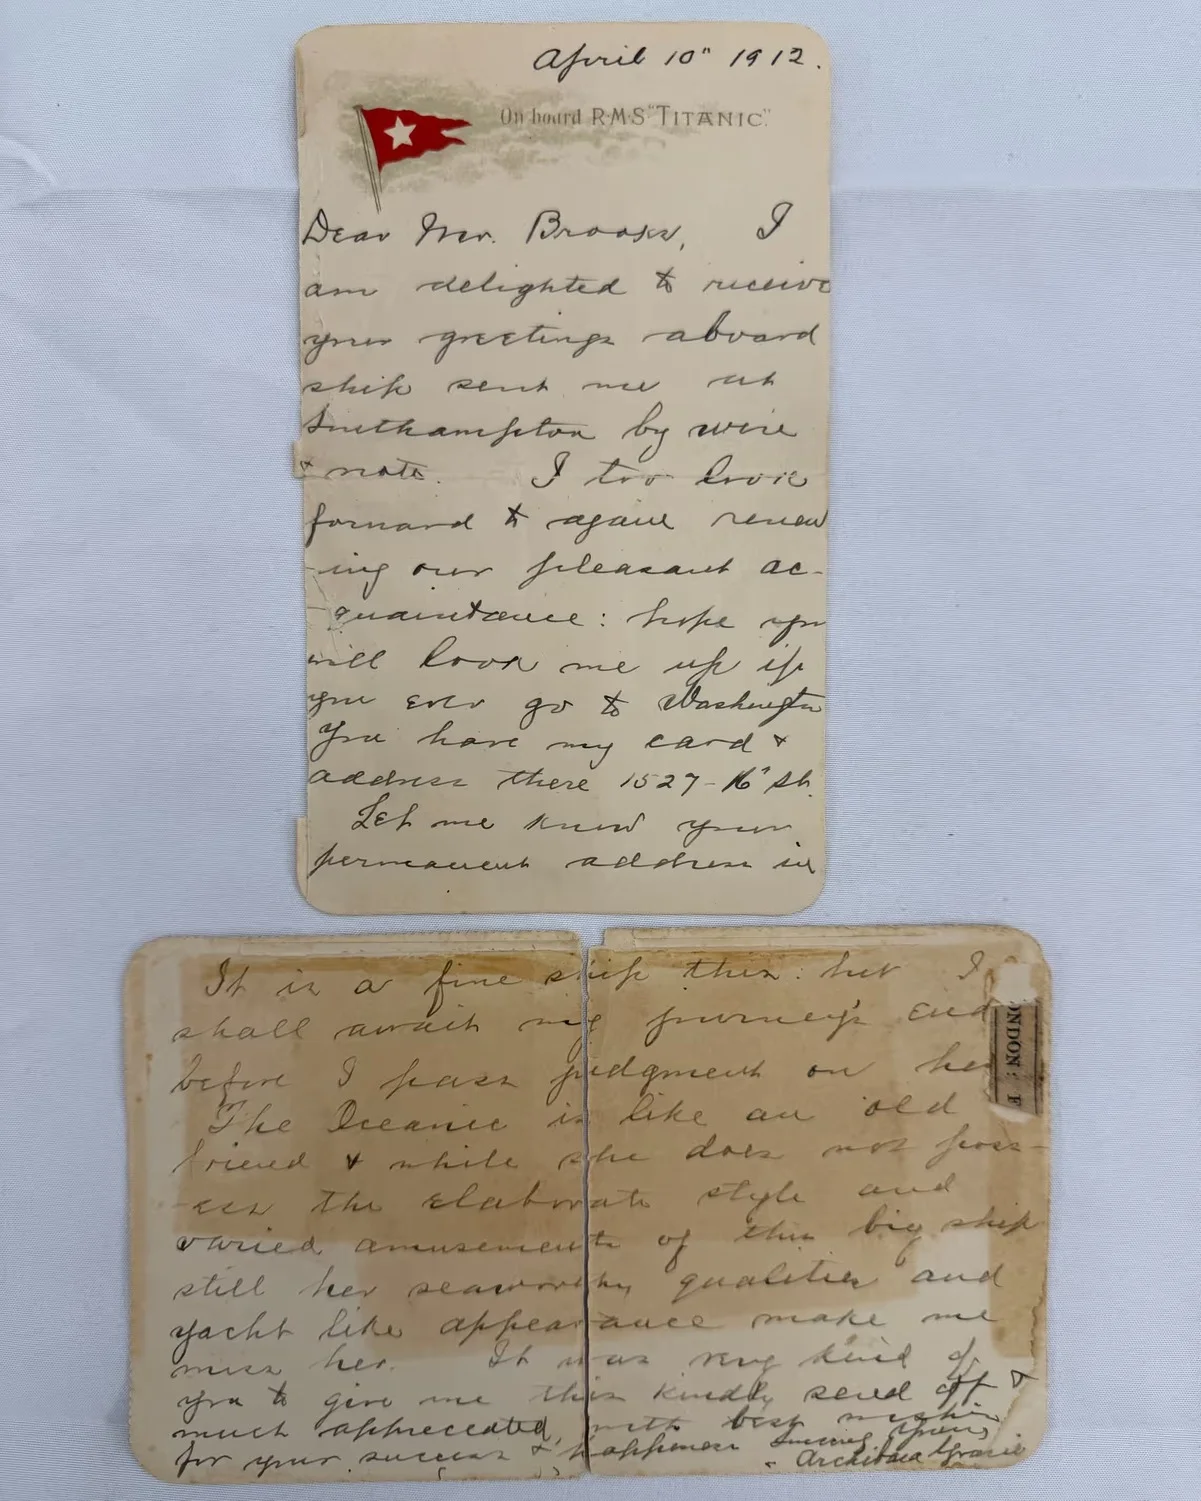 April 10" 1912.
On board R.M.S "TITANIC."
Dear Mr. Brooks, I
am delighted to receive
your greetings aboard
ship sent me at
Southampton by wire
& note. I too look
forward to again renew
-ing our pleasant ac-
quaintance: hope you
will look me up if
you ever go to Washington
You have my card &
address there 1527-16" St.
Let me know your
permanent address in
It is a fine ship this: but I
shall await my journey's end
before I pass judgment on her
The Oceanic is like an old
friend & while she does not poss-
-ess the elaborate style and
varied amusements of this big ship
still her seaworthy qualities and
yacht like appearance make me
miss her. It was very kind of
you to give me this kindly send off &
much appreciated, with best wishes
for your success & happiness Sincerely yours,
Archibald Gracie
ONDON: F